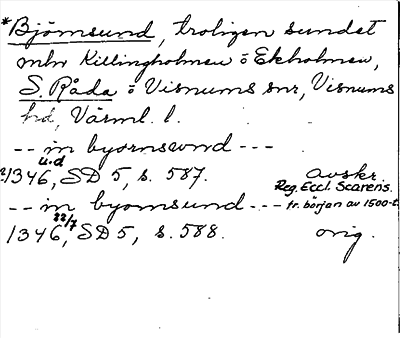 *Björnsund, troligen sundet
mln Killingholmen o Ekholmen,
S. Råda o Visnums snr, Visnums
hd, Värml. l.
-- in byornswnd ---
u.d
1346, SD 5, s. 587. avskr.
Reg. Eccl. Scarens.
-- in byornsund --- fr. början av 1500-t.
22/7
1346, SD 5, s. 588. orig.